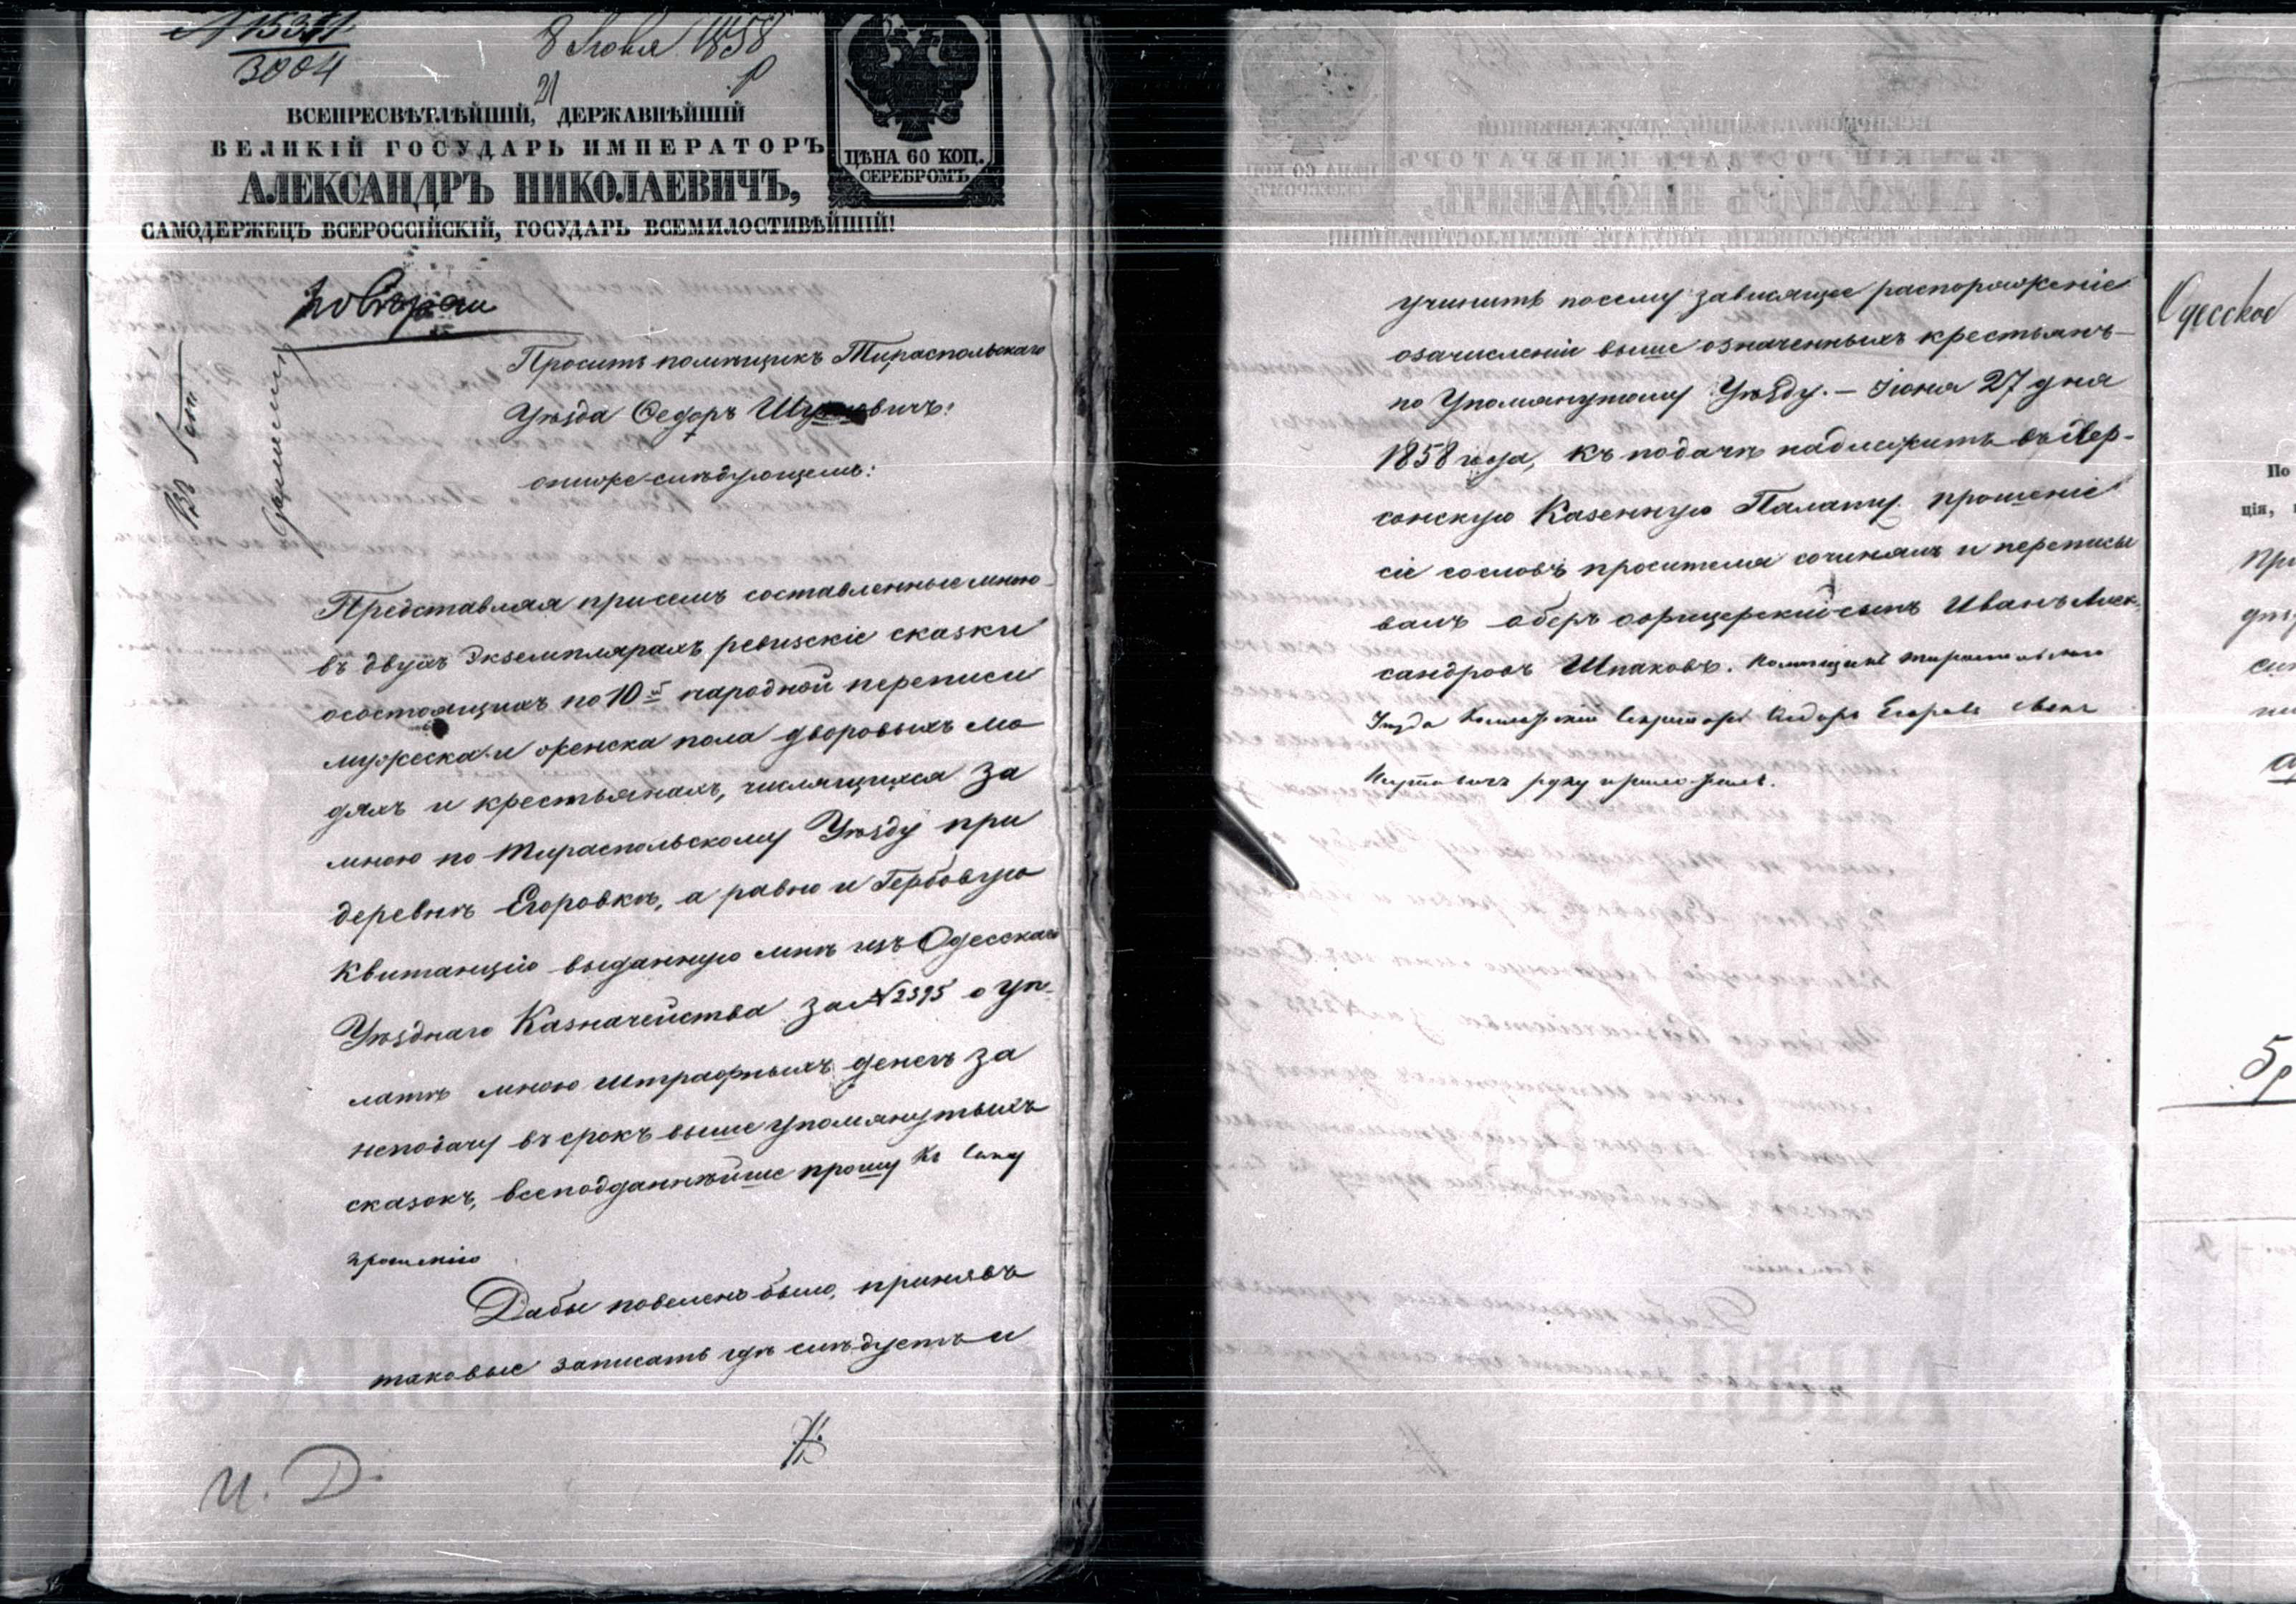 15341
3004
8 Июля 1858
21
ВСЕПРЕСВѢТЛѢЙШІЙ, ДЕРЖАВНѢЙШІЙ
ВЕЛИКІЙ ГОСУДАРЬ ИМПЕРАТОРЪ
АЛЕКСАНДРЪ НИКОЛАЕВИЧЪ,
САМОДЕРЖЕЦЪ ВСЕРОССІЙСКІЙ, ГОСУДАРЬ ВСЕМИЛОСТИВѢЙШІЙ!
ЦѢНА 60 КОП.
СЕРЕБРОМЪ.
Проситъ помѣщикъ Тираспольскаго
Уѣзда Ѳедоръ
отомже слѣдующемъ:
Представляя присемъ составленные мною
въ двухъ Экземплярахъ ревизскіе сказки
осостоящихъ по 10й народной переписи
мужеска и женска пола дворовыхъ лю
дяхъ и крестьянахъ, числящихся за
мною по Тираспольскому Уѣзду при
деревнѣ Егоровкѣ, а равно и Гербовую
Квитанцію выданную мнѣ изъ Одесскаго
Уѣзднаго Казначейства за № 2395 о уп-
латѣ мною штрафныхъ денегъ за
неподачу въ срокъ выше упомянутыхъ
сказокъ, всеподданнѣйше прошу Къ сему
прошенію
Дабы повелено было, принявъ
таковые записать гдѣ слѣдуетъ и
И. Д.
учинить посему зависящее распоряженіе
озачисленіи выше означенныхъ крестьянъ
по Упомянутому Уѣзду. — Іюня 27 дня
1858 года, къ подачѣ надлежитъ въ Хер-
сонскую Казенную Палату. прошеніе
сіе сословъ просителя сочинялъ и переписы
валъ оберъ офицерскій сынъ Иванъ Алек-
сандровъ Шпаковъ. Помѣщикъ Тираспольскаго
Уѣзда Коллежскій Секретарь Ѳедоръ Егоровъ сынъ
руку приложилъ.
Одесское
По
ція,
при
5 р